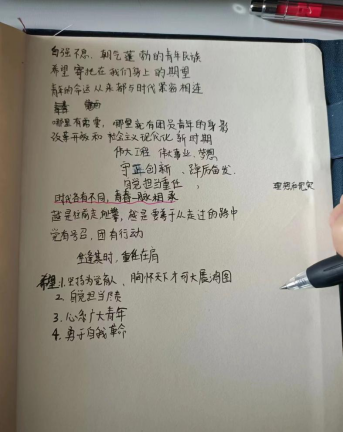 自强不息、朝气蓬勃的青年民族
希望寄托在我们身上的期望
青年的命运从来都与时代紧密相连
哪里有需要，哪里就有团员青年的身影
改革开放和社会主义现代化新时期
伟大工程 伟大事业、梦想
守正创新、踔厉奋发、
自觉担当重任，
理想和现实
时代各有不同，青春一脉相承
越是往前走，越是要善于从走过的路中
党有号召，团有行动
生逢其时，重任在肩
希望 1. 坚持为党育人，胸怀天下才可大展鸿图
2. 自觉担当尽责
3. 心系广大青年
4. 勇于自我革命